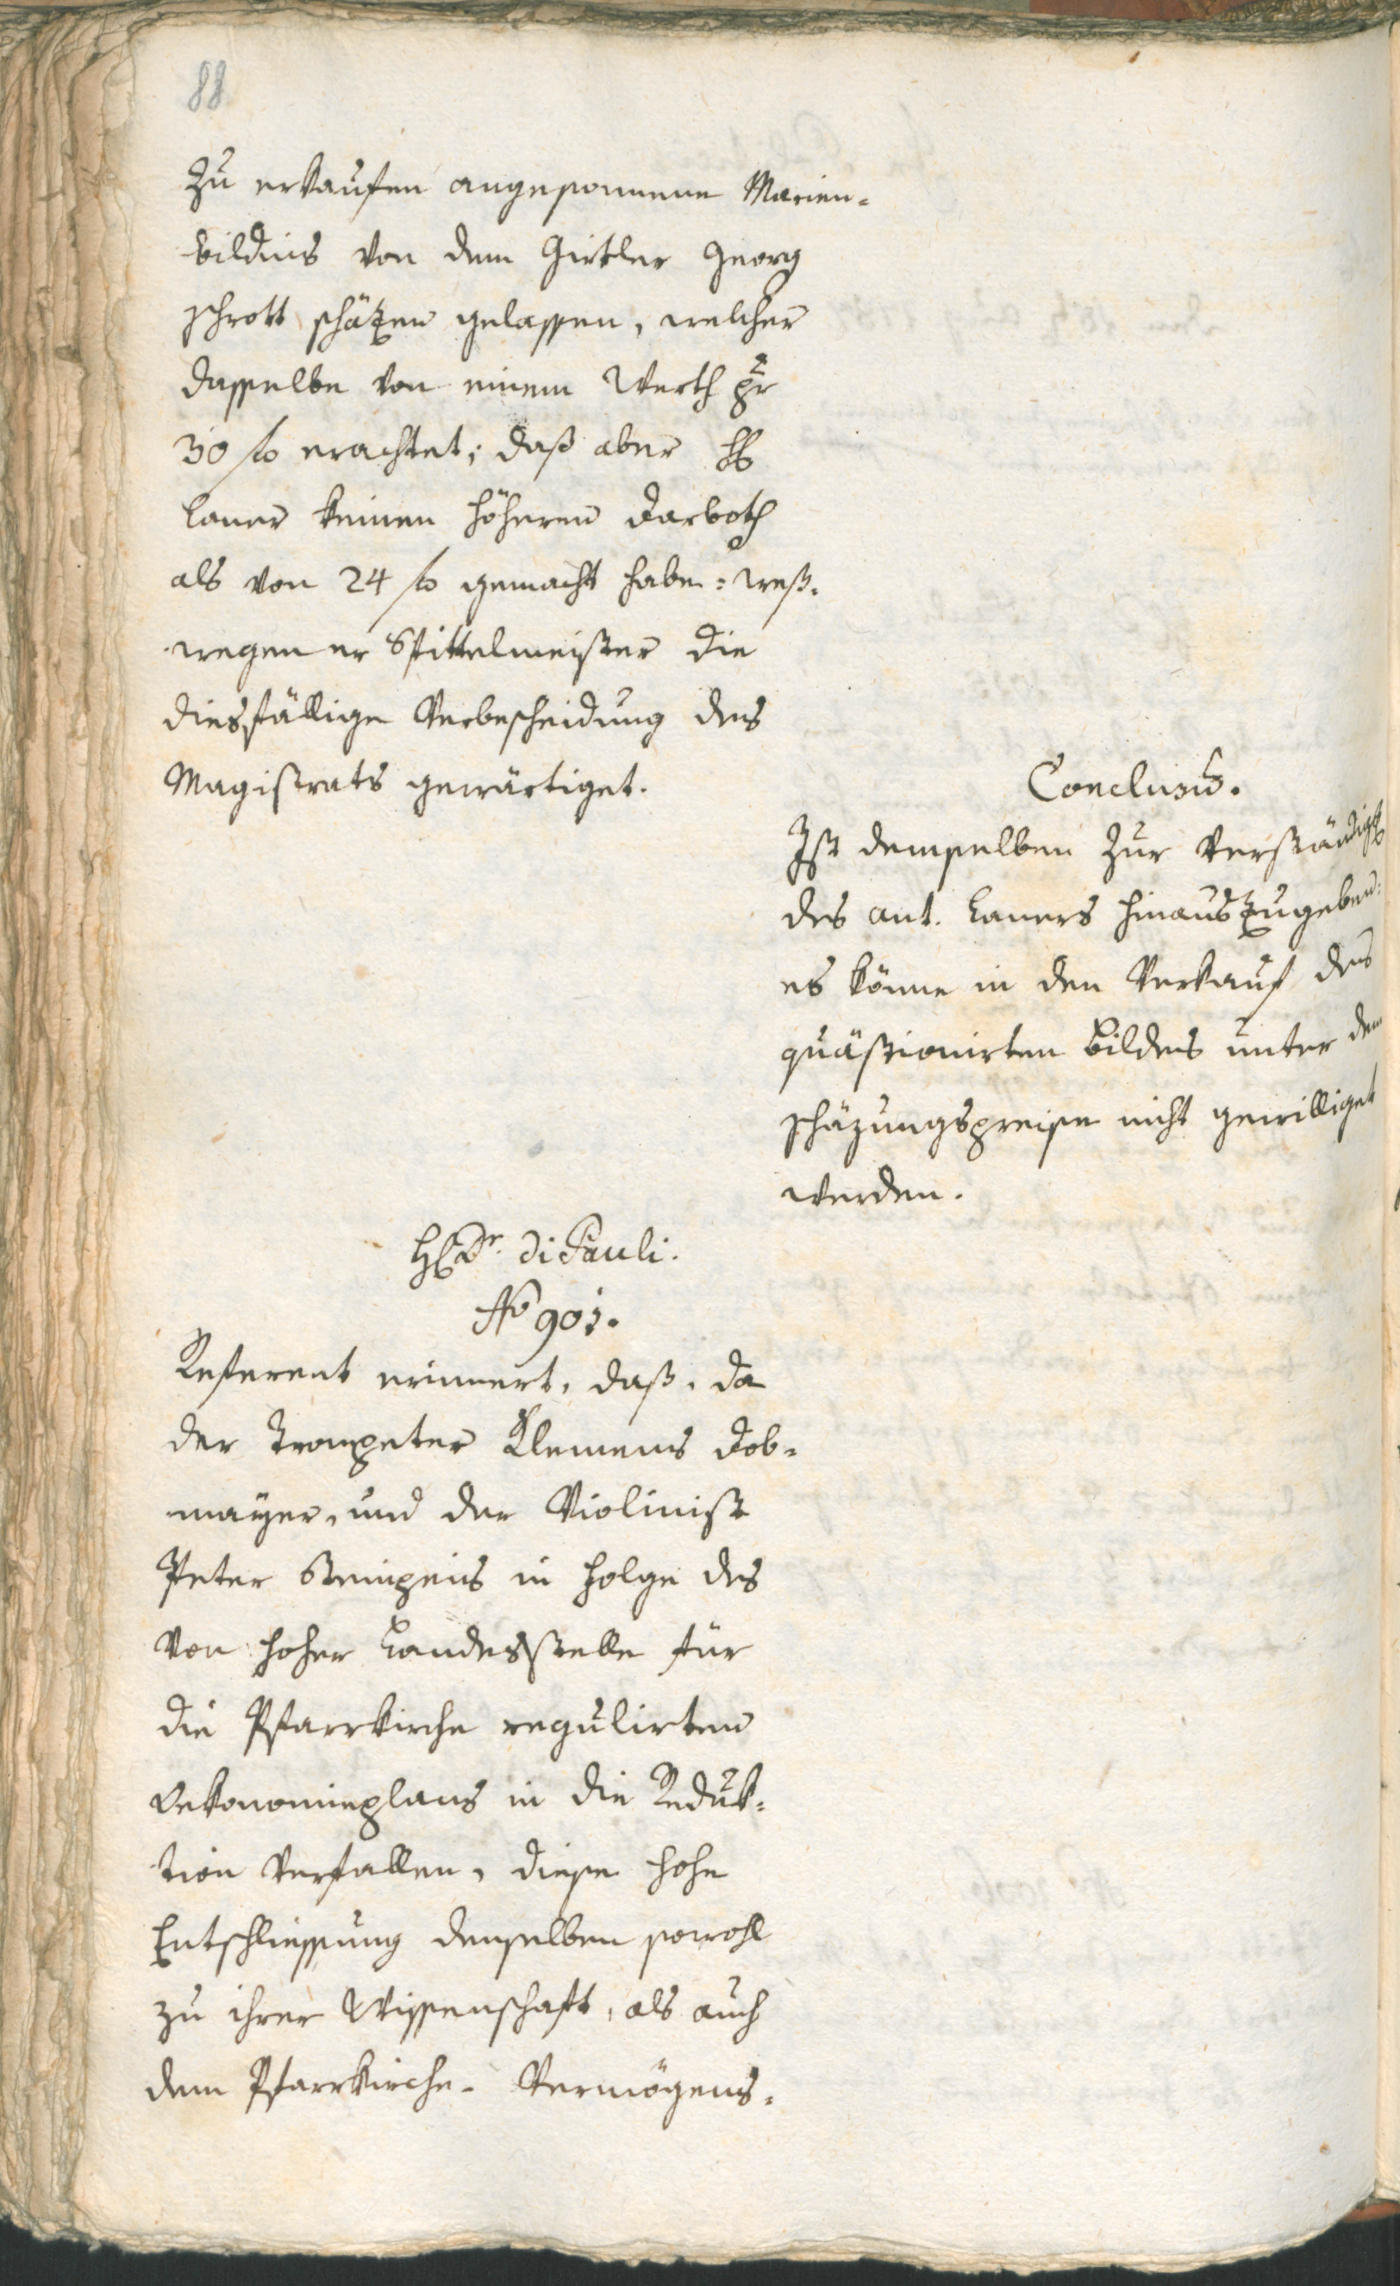 88
zu erkaufen angesonnene Marien-
bildnis von dem Girtler Georg
Schrott schätzen gelassen, welcher
dasselbe von einem Werth pr
30 fl erachtet; daß aber H
Laner keinen höheren Darboth
als von 24 fl gemacht habe: weß-
wegen er Spittelmeister die
diesfällige Verbescheidung des
Magistrats gewärtiget.
Conclusum.
Ist demselben zur Verständig
des ant. Laners hinauszugeben:
es könne in den Verkauf des
quästionirten Bildes unter dem
Schäzungspreise nicht gewilliget
werden.
H Dr. di Pauli.
No 901.
Referent erinnert, daß, da
der Trompeter Klemens Dob-
mayer, und der Violinist
Peter in Folge des
von hoher Landesstelle für
die Pfarrkirche regulirten
Oekonomieplans in die Reduk-
tion verfallen, diese hohe
Entschliessung denselben sowohl
zu ihrer Wissenschaft, als auch
dem Pfarrkirche- Vermögens-